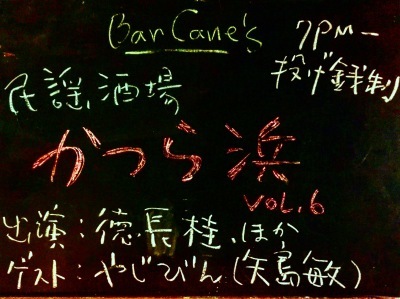 Bar Cane's
7PM—
投げ銭制
民謡酒場
かつら浜
VOL.6
出演：徳長桂、ほか
ゲスト：やじびん（矢島敏）